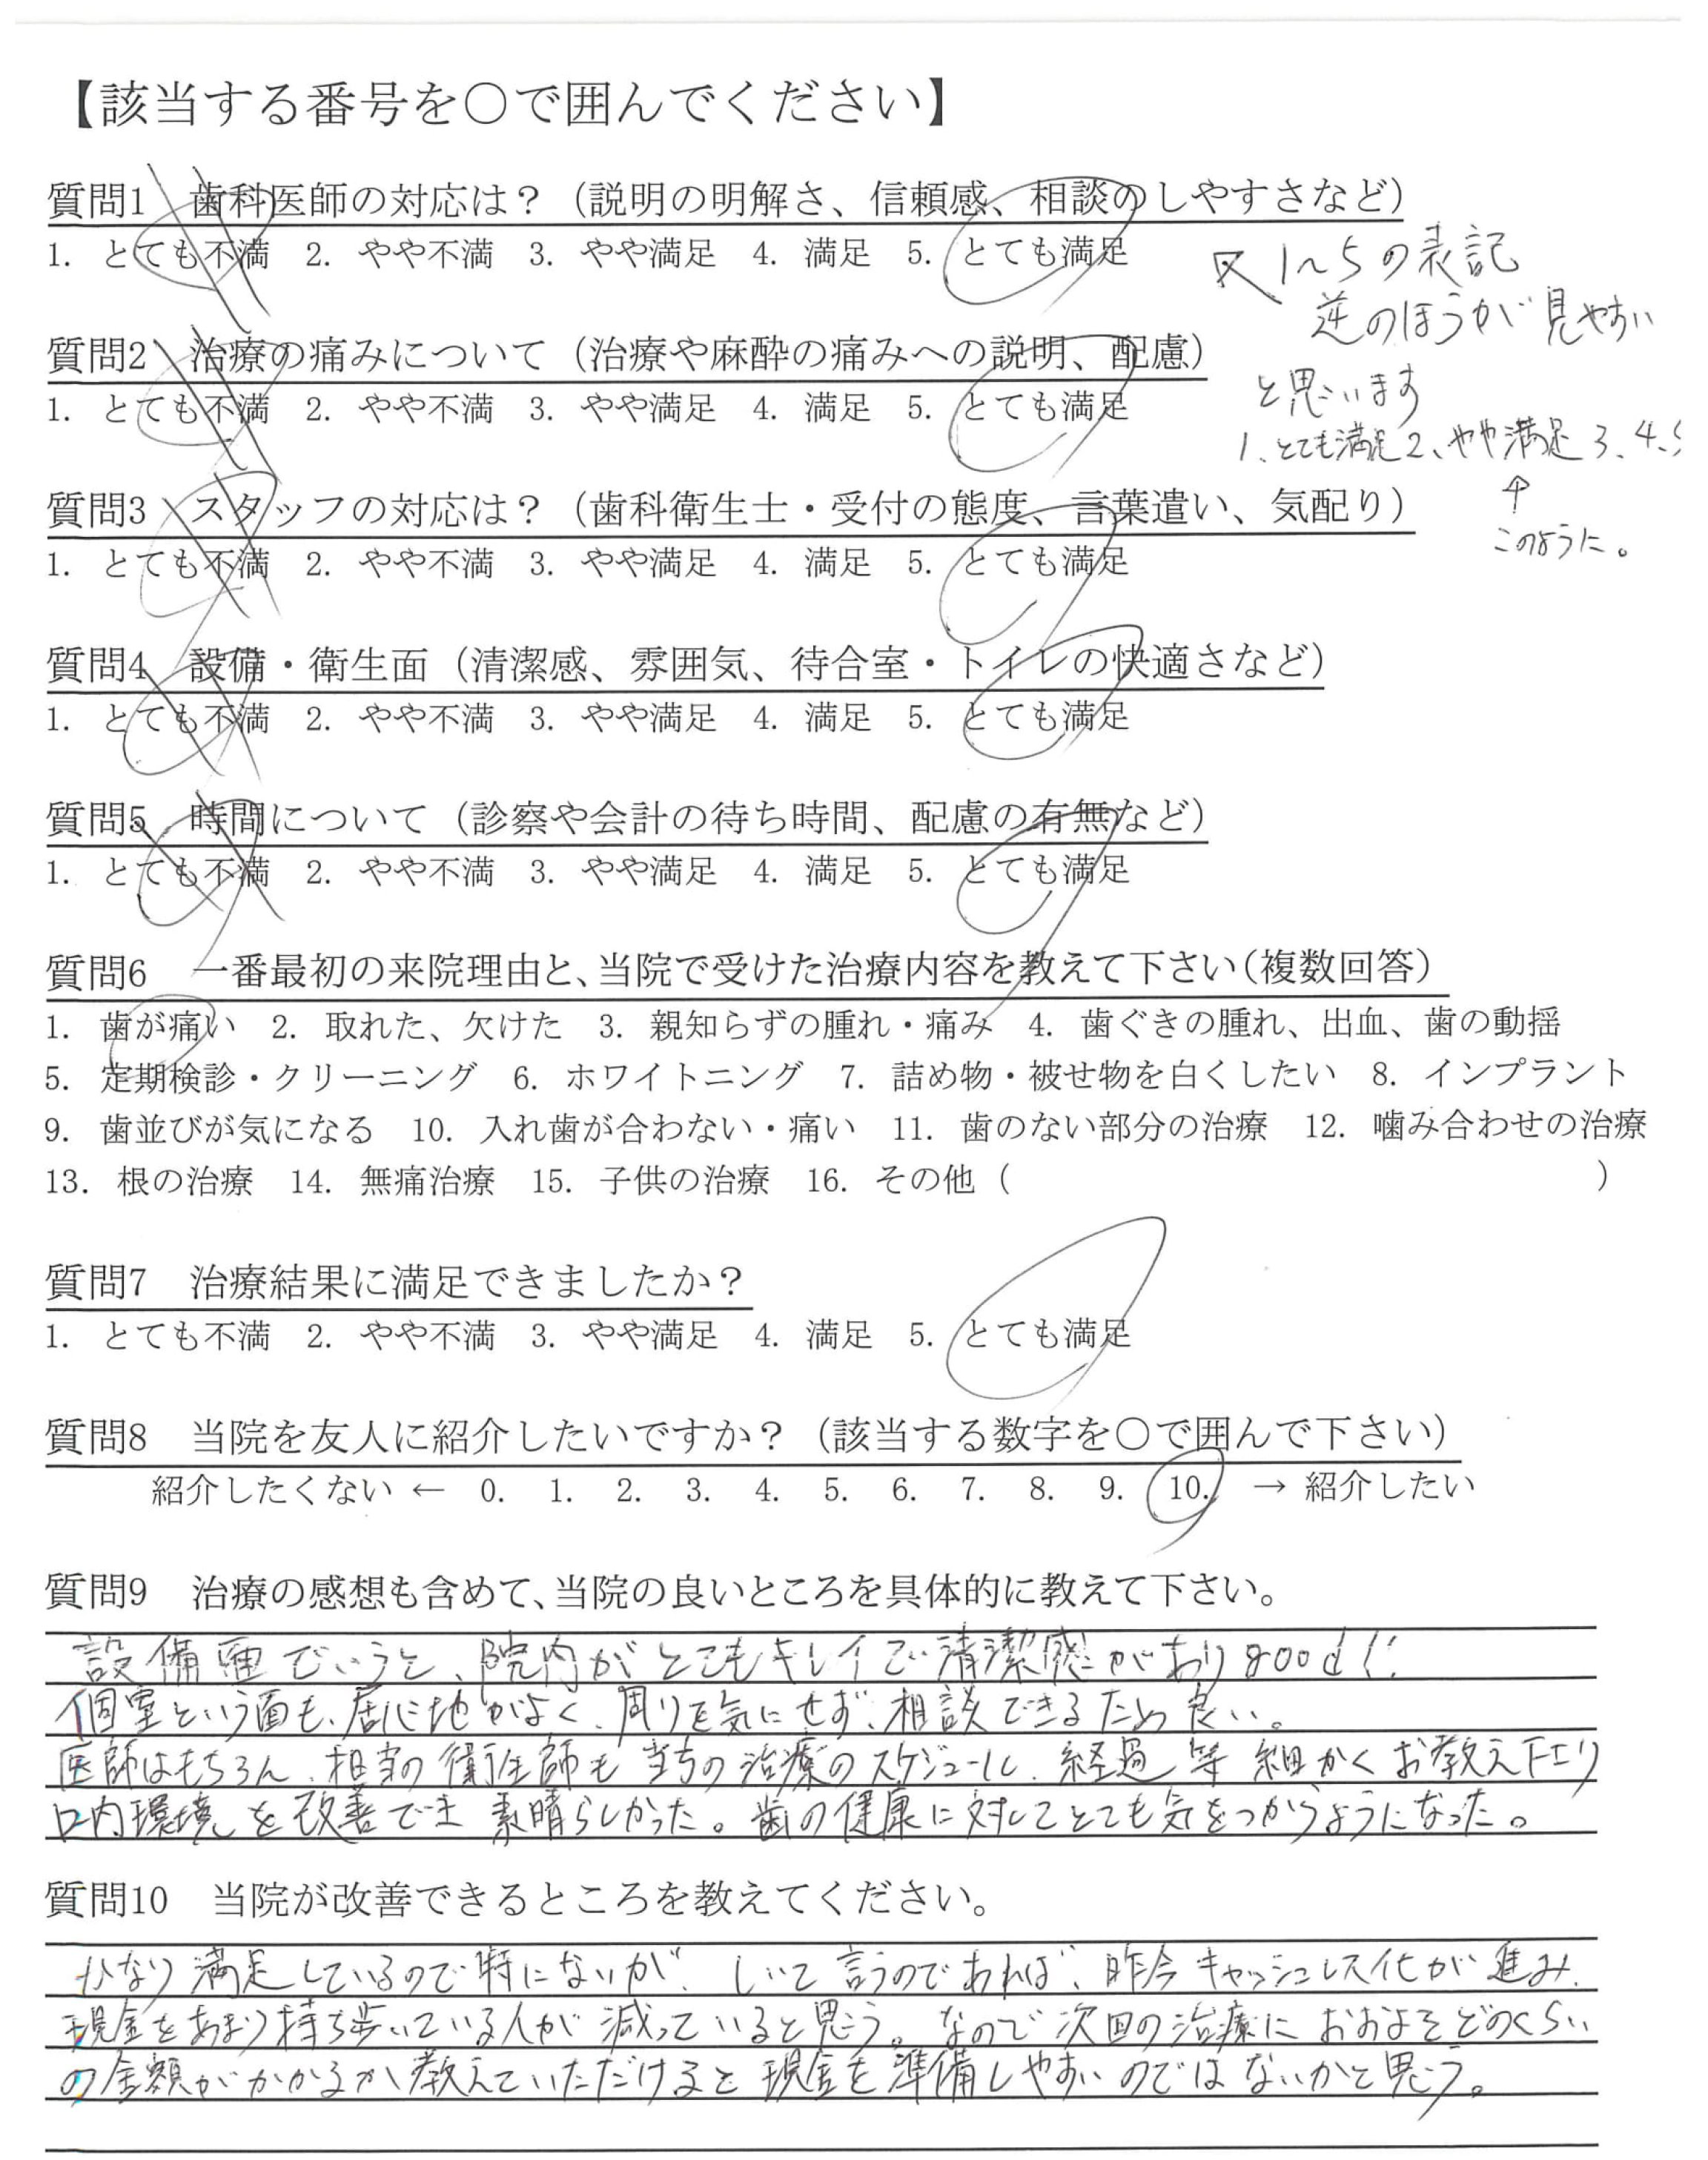 【該当する番号を○で囲んでください】
質問1　歯科医師の対応は？（説明の明解さ、信頼感、相談のしやすさなど）
1. とても不満　2. やや不満　3. やや満足　4. 満足　5. とても満足
1～5の表記
逆のほうが見やすい
と思います
1、とても満足 2、やや満足 3、4、5
↑
このように。
質問2　治療の痛みについて（治療や麻酔の痛みへの説明、配慮）
1. とても不満　2. やや不満　3. やや満足　4. 満足　5. とても満足
質問3　スタッフの対応は？（歯科衛生士・受付の態度、言葉遣い、気配り）
1. とても不満　2. やや不満　3. やや満足　4. 満足　5. とても満足
質問4　設備・衛生面（清潔感、雰囲気、待合室・トイレの快適さなど）
1. とても不満　2. やや不満　3. やや満足　4. 満足　5. とても満足
質問5　時間について（診察や会計の待ち時間、配慮の有無など）
1. とても不満　2. やや不満　3. やや満足　4. 満足　5. とても満足
質問6　一番最初の来院理由と、当院で受けた治療内容を教えて下さい（複数回答）
1. 歯が痛い　2. 取れた、欠けた　3. 親知らずの腫れ・痛み　4. 歯ぐきの腫れ、出血、歯の動揺
5. 定期検診・クリーニング　6. ホワイトニング　7. 詰め物・被せ物を白くしたい　8. インプラント
9. 歯並びが気になる　10. 入れ歯が合わない・痛い　11. 歯のない部分の治療　12. 噛み合わせの治療
13. 根の治療　14. 無痛治療　15. 子供の治療　16. その他（　　　　　　　　　　）
質問7　治療結果に満足できましたか？
1. とても不満　2. やや不満　3. やや満足　4. 満足　5. とても満足
質問8　当院を友人に紹介したいですか？（該当する数字を○で囲んで下さい）
紹介したくない ← 0. 1. 2. 3. 4. 5. 6. 7. 8. 9. 10. → 紹介したい
質問9　治療の感想も含めて、当院の良いところを具体的に教えて下さい。
設備面でいうと、院内がとてもキレイで清潔感がありgood!!
個室という面も、居心地がよく、周りを気にせず、相談できるため良い。
医師はもちろん、担当の衛生師も の治療のスケジュール、経過等 細かくお教え下さり
口内環境を改善でき 素晴らしかった。歯の健康に対してとても気をつかうようになった。
質問10　当院が改善できるところを教えてください。
かなり満足しているので特にないが、しいて言うのであれば、昨今キャッシュレス化が進み、
現金をあまり持ち歩いている人が減っていると思う。なので次回の治療におおよそどのくらい
の金額がかかるか教えていただけると現金を準備しやすいのではないかと思う。